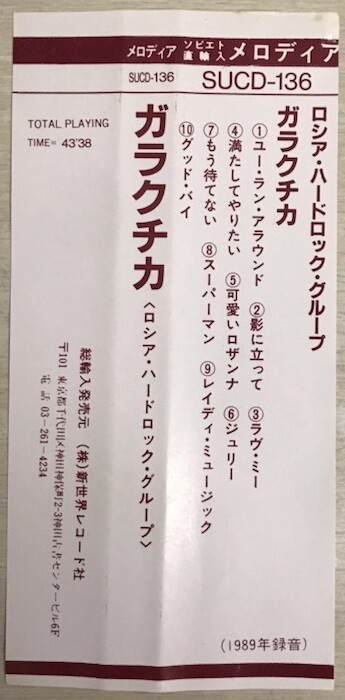 ソビエト
直輸入
メロディア
SUCD-136
ロシア・ハードロック・グループ
ガラクチカ
①ユー・ラン・アラウンド ②影に立って ③ラヴ・ミー
④満たしてやりたい ⑤可愛いロザンナ ⑥ジュリー
⑦もう待てない ⑧スーパーマン ⑨レイディ・ミュージック
⑩グッド・バイ
(1989年録音)
メロディア
SUCD-136
ガラクチカ 〈ロシア・ハードロック・グループ〉
TOTAL PLAYING
TIME= 43'38
総輸入発売元 (株)新世界レコード社
〒101 東京都千代田区神田神保町2-3神田古書センタービル6F
電話 03-261-4234